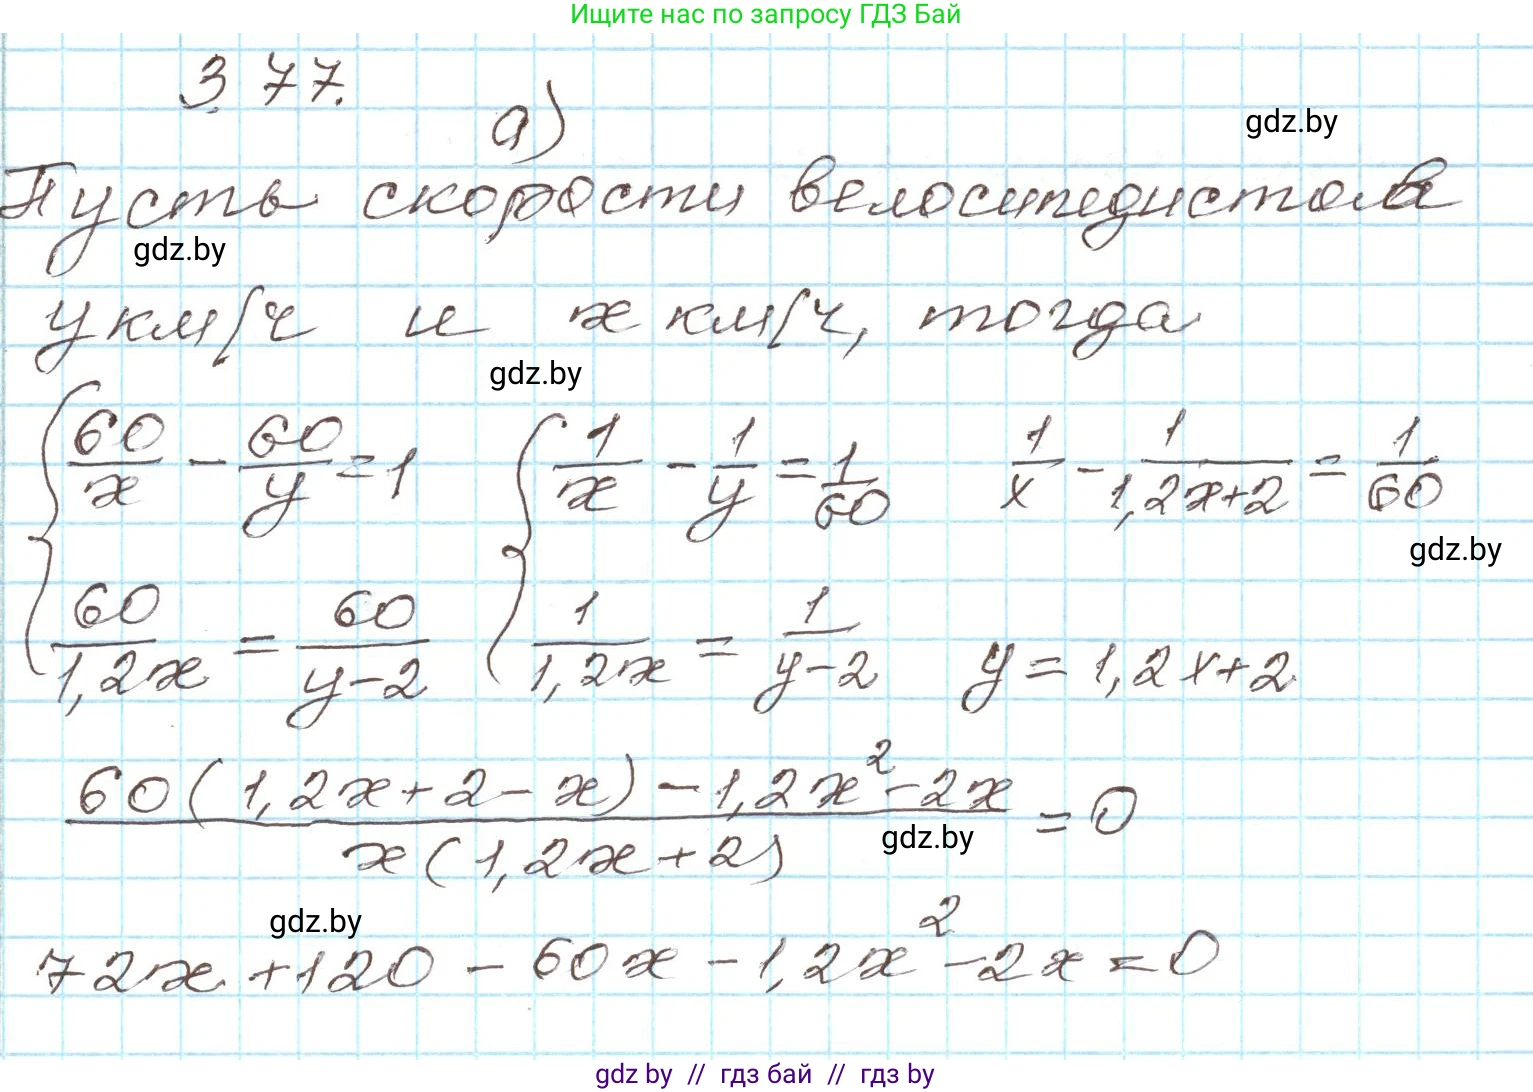 Ищите нас по запросу ГДЗ Бай
3.77.
а)
gdz.by
Пусть скорости велосипедистов
gdz.by
y км/ч и x км/ч, тогда
gdz.by
60/x - 60/y = 1 1/x - 1/y = 1/60 1/x - 1/1,2x+2 = 1/60
gdz.by
60/1,2x = 60/y-2 1/1,2x = 1/y-2 y = 1,2x+2
60(1,2x+2-x) - 1,2x² - 2x / x(1,2x+2) = 0
gdz.by
gdz.by
72x + 120 - 60x - 1,2x² - 2x = 0
gdz.by // гдз бай // гдз by